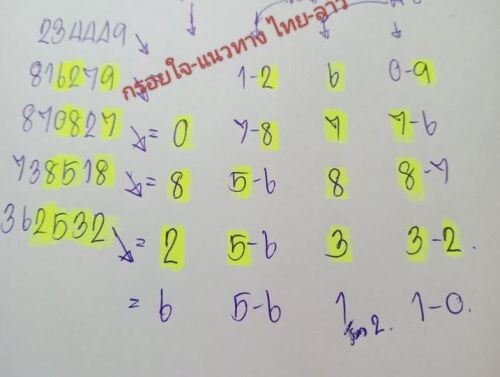 234449
กรอยใจ-แนวทาง ไทย-ลาว
816279 1-2 6 0-9
870827 = 0 7-8 7 7-6
738518 = 8 5-6 8 8-7
362532 = 2 5-6 3 3-2.
= 6 5-6 1 1-0.
2.